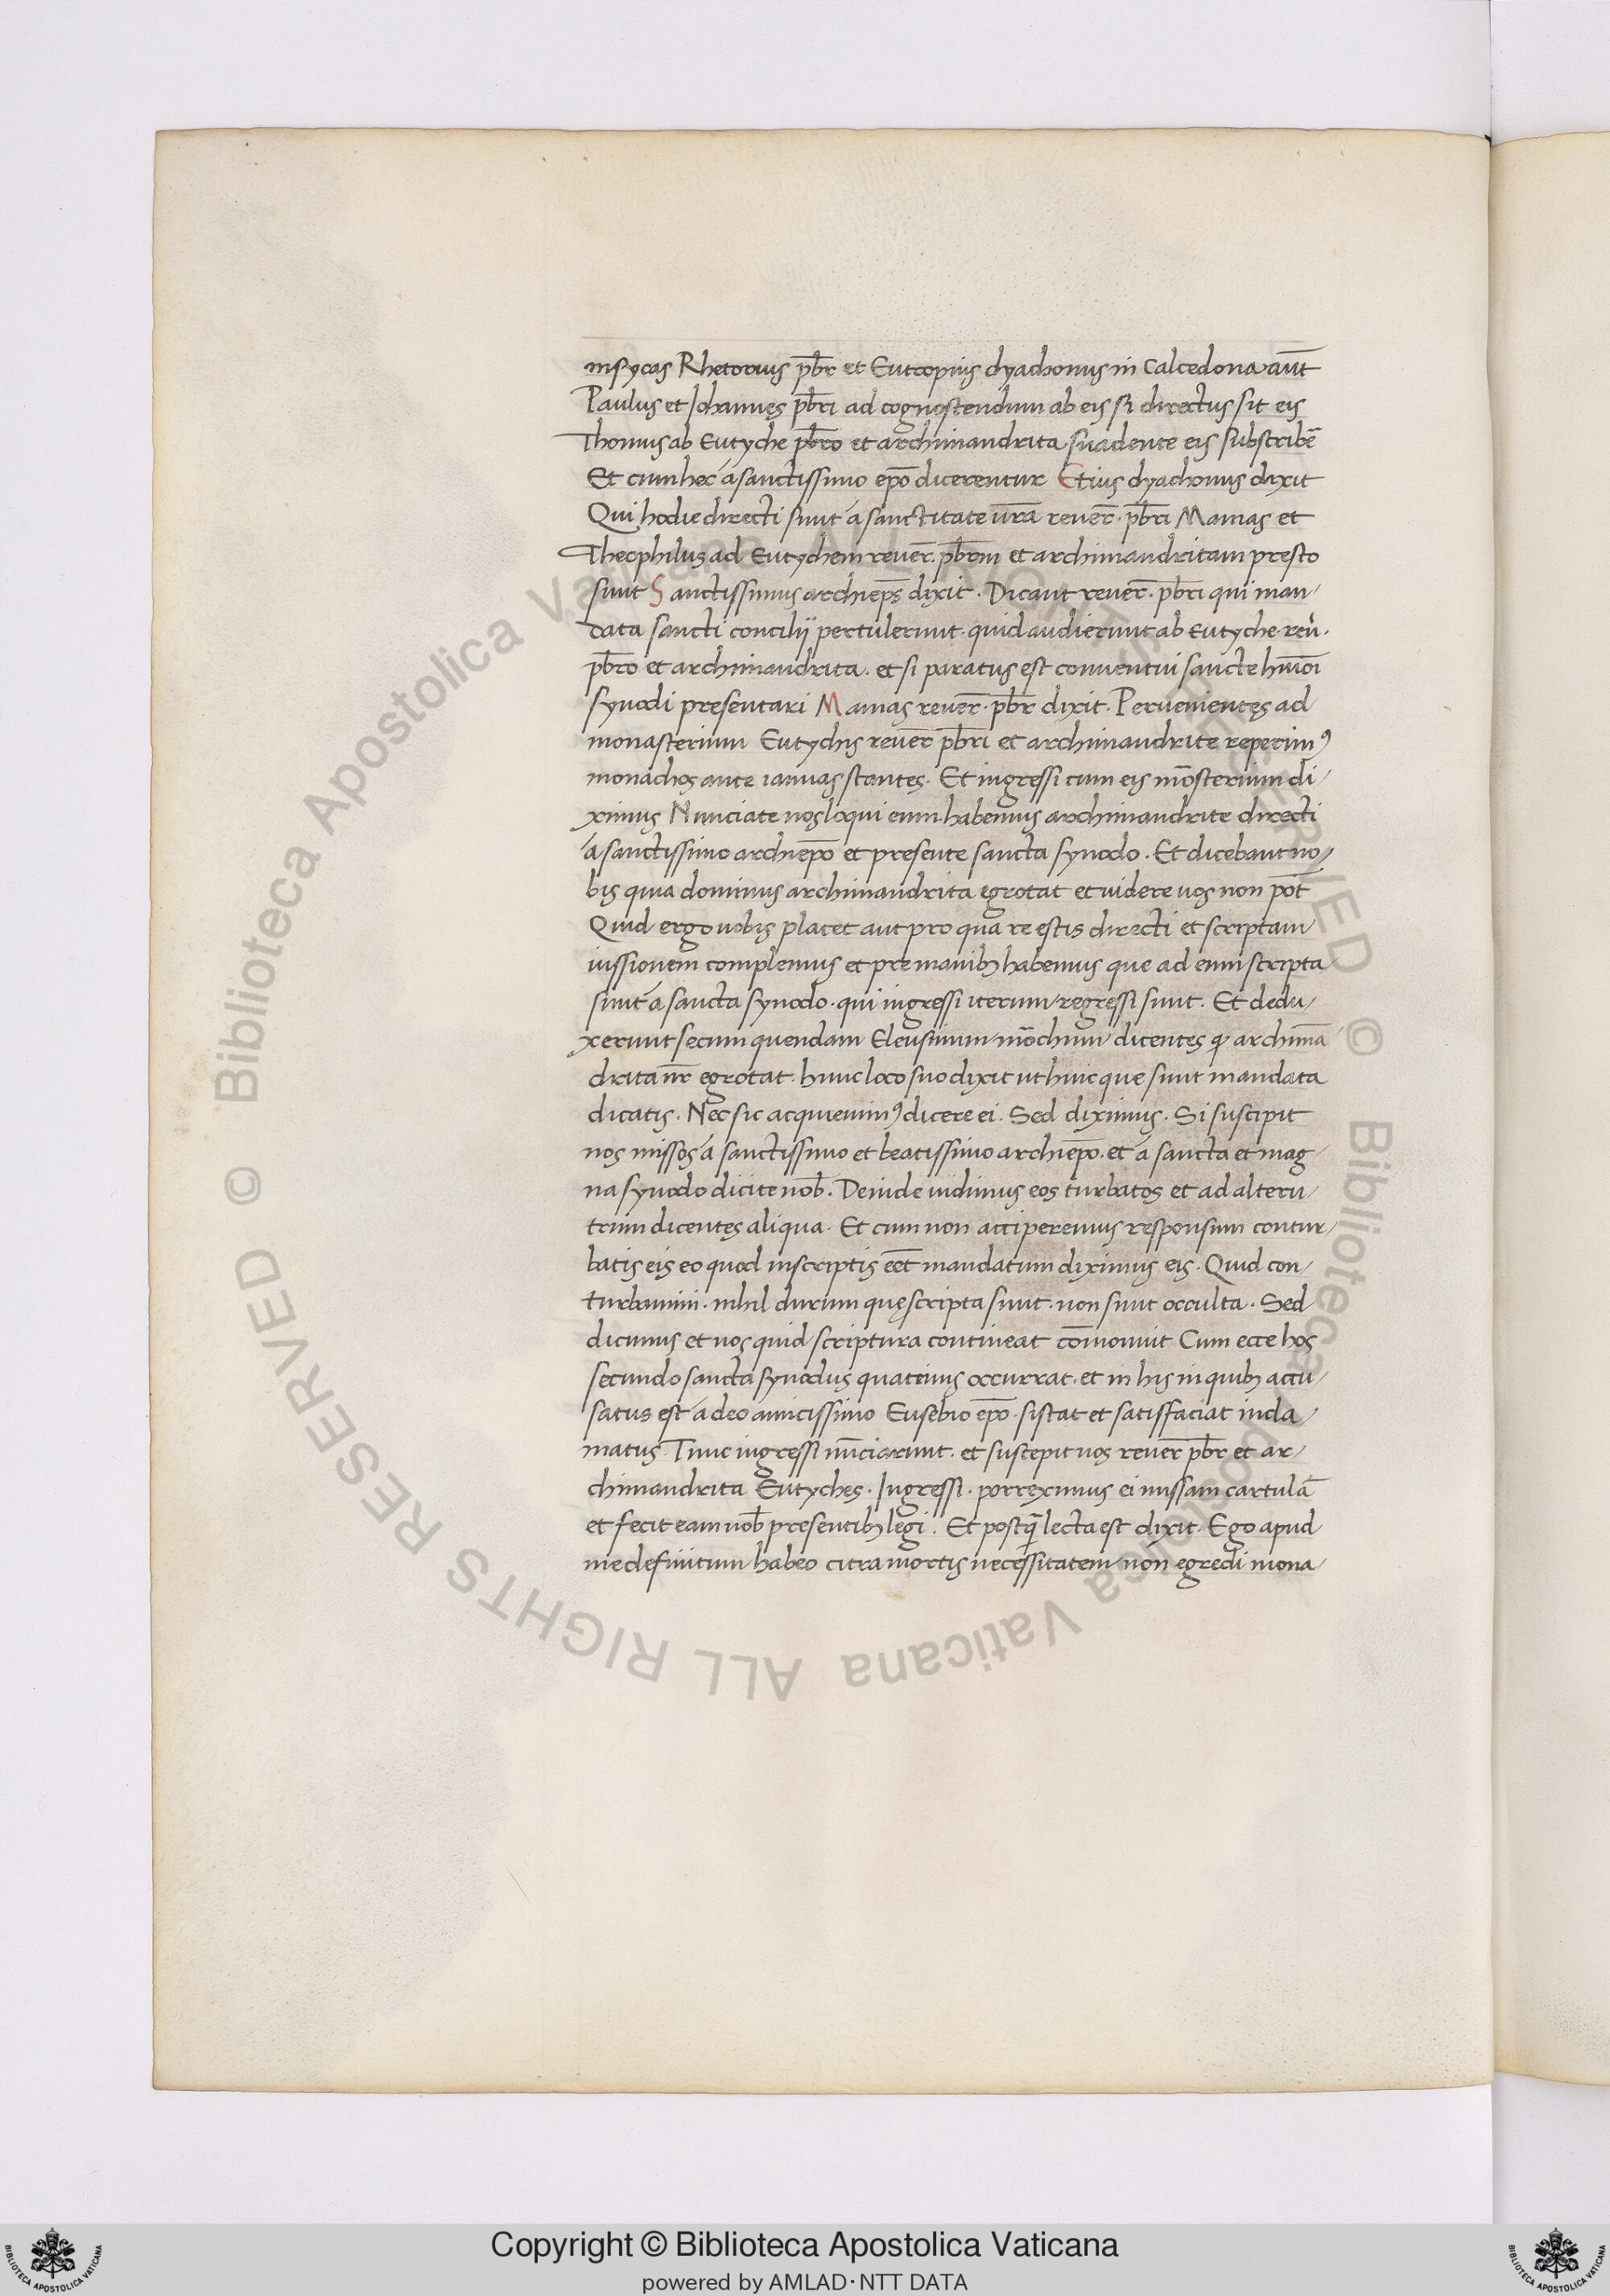 insycas Rhetorius pb̄r et Eutropius dyachonus in Calcedona aūt
Paulus et Johannes pb̄ri ad cognoscendum ab eis si directus sit eis
Thomus ab Eutyche pb̄ro et archimandrita suadente eis subscribē
Et cum hec á sanctissimo ep̄o dicerentur Etius dyachonus dixit
Qui hodie directi sunt á sanctitate ur̄a reuer̄. pb̄ri Mamas et
Theophilus ad Eutychem reuer̄. pb̄rm et archimandritam presto
sunt Sanctissimus archiep̄s dixit. Dicant reuer̄. pb̄ri qui man/
data sancti concilij pertulerunt. quid audierunt ab Eutyche. reu̇.
pb̄ro et archimandrita. et si paratus est conuentui sancte hm̄ōi
synodi presentari Mamas reuer̄. pb̄r dixit. Peruenientes ad
monasterium Eutychis reuer̄ pb̄ri et archimandrite reperimꝰ
monachos ante ianuas stantes. Et ingressi cum eis mōsterium di/
ximus Nunciate nos loqui eum habemus archimandrite directi
á sanctissimo archiep̄o et presente sancta synodo. Et dicebant no/
bis quia dominus archimandrita egrotat et uidere uos non pōt
Quid ergo uobis placet aut pro qua re estis directi et scriptam
iussionem complemus et pre manibꝫ habemus que ad eum scripta
sunt á sancta synodo. qui ingressi iterum regressi sunt. Et dedu/
xerunt secum quendam Eleusinium mōchum dicentes ꝙ archimā
drita nr̄ egrotat. hunc loco suo dixit ut huic que sunt mandata
dicatis. Nec sic acquieuimꝰ dicere ei. Sed diximus. Si suscipit
nos missos á sanctissimo et beatissimo archiep̄o. et á sancta et mag/
na synodo dicite nob̄. Deinde uidimus eos turbatos et ad alteru/
trum dicentes aliqua. Et cum non acciperemus responsum contur/
batis eis eo quod inscriptis eēt mandatum diximus eis. Quid con/
turbamini. nihil durum quę scripta sunt. non sunt occulta. Sed
dicimus et nos quid scriptura contineat cōmonuit Cum ecce hos
secundo sancta synodus quatinus occurrat. et in his in quibꝫ accu/
satus est á deo amicissimo Eusebio ep̄o. sistat et satisfaciat incla/
matus. Tunc ingressi nūciarunt. et suscepit nos reuer̄ pb̄r et ar/
chimandrita Eutyches. Ingressi. porreximus ei missam cartulā
et fecit eam nob̄ presentibꝫ legi. Et postq̄ lecta est dixit. Ego apud
me definitum habeo citra mortis necessitatem non egredi mona/
© Biblioteca Apostolica Vaticana ALL RIGHTS RESERVED © Biblioteca Apostolica Vaticana ALL RIGHTS RESERVED
Copyright © Biblioteca Apostolica Vaticana
powered by AMLAD·NTT DATA
BIBLIOTECA APOSTOLICA VATICANA
BIBLIOTECA APOSTOLICA VATICANA